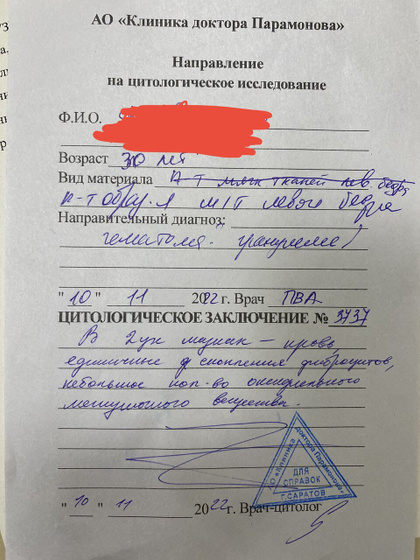 АО «Клиника доктора Парамонова»
Направление
на цитологическое исследование
Ф.И.О.
Возраст 30 лет
Вид материала п-т мягк тканей лев. бедра
п-т обрау-я м/т левого бедра
Направительный диагноз:
гематома. гранулема?
"10" 11 2022 г. Врач ПВА
ЦИТОЛОГИЧЕСКОЕ ЗАКЛЮЧЕНИЕ № 3737
В 2ух мазках – кровь,
единичные скопления фиброцитов,
небольшое кол-во оксифильного
межуточного вещества.
АО «Клиника Доктора Парамонова»
ДЛЯ
СПРАВОК
Г.САРАТОВ
"10" 11 2022 г. Врач-цитолог